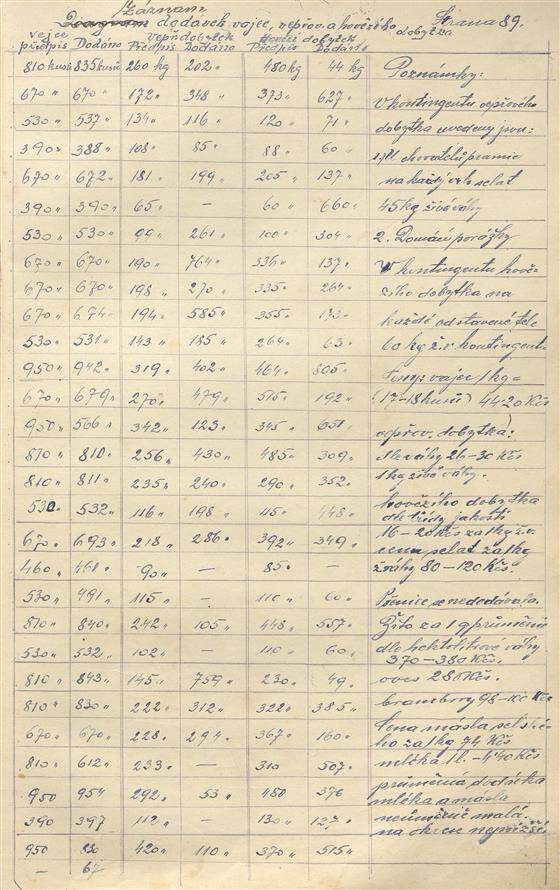 Záznam
dodávek vajec, vepřov. a hovězího dobytka Strana 89.
vejce vepř. dobytek Hovězí dobytek
předpis Dodáno Předpis Dodáno Předpis Dodáno
810 kusů 835 kusů 260 kg 202 " 480 kg 44 kg Poznámky:
670 " 670 " 172 " 348 " 373 " 627 " V kontingentu vepřového
530 " 537 " 134 " 116 " 120 " 71 " dobytka uvedeny jsou:
390 " 388 " 108 " 85 " 88 " 60 " chovatelů prasnic
670 " 672 " 181 " 199 " 205 " 137 " na každý vrh selat
390 " 390 " 65 " — 60 " 660 " 45 kg živé váhy
530 " 530 " 99 " 261 " 100 " 304 " 2. Domácí porážky
670 " 670 " 190 " 764 " 336 " 137 " V kontingentu hově-
670 " 670 " 198 " 270 " 335 " 264 " zího dobytka na
670 " 674 " 194 " 585 " 355 " každé odstavené tele
530 " 531 " 143 " 185 " 264 " 63 " 60 kg ž.v. kontingentu
950 " 942 " 319 " 402 " 464 " 805 " Ceny: vajec 1 kg =
670 " 679 " 270 " 479 " 515 " 192 " (17-18 kusů) 44 20 Kčs
950 " 566 " 342 " 123 " 345 " 651 " vepřov. dobytka:
810 " 810 " 256 " 430 " 485 " 309 " dle váhy 26-30 Kčs
810 " 811 " 235 " 240 " 290 " 352 " 1 kg živé váhy.
530 " 532 " 116 " 198 " 115 " 448 " hovězího dobytka
dle třídy jakosti
670 " 693 " 218 " 286 " 392 " 349 " 16-20 Kčs za 1 kg ž.v.
cena selat za 1 kg
460 " 461 " 90 " — 85 " — ž. váhy 80-120 Kčs.
530 " 491 " 115 " — 110 " 60 " Pšenice se nedodávala.
810 " 840 " 242 " 105 " 448 " 557 " Žito za 1 q průměrně
530 " 532 " 102 " — 110 " 60 " dle hektolitrové váhy
370-380 Kčs.
810 " 843 " 145 " 759 " 230 " 49 " oves 280 Kčs.
810 " 830 " 222 " 312 " 322 " 385 " brambory 98- Kčs
670 " 670 " 228 " 294 " 367 " 160 " Cena másla selské-
ho za 1 kg 74 Kčs
810 " 612 " 233 " — 310 507 " mléka 1 l. - 4.40 Kčs
950 954 292 " 53 " 480 376 průměrná dodávka
mléka a másla
390 397 112 " — 130 " 127 " neúměrně malá.
na okrese nejnižší.
950 830 420 " 110 " 370 " 515 "
— 67